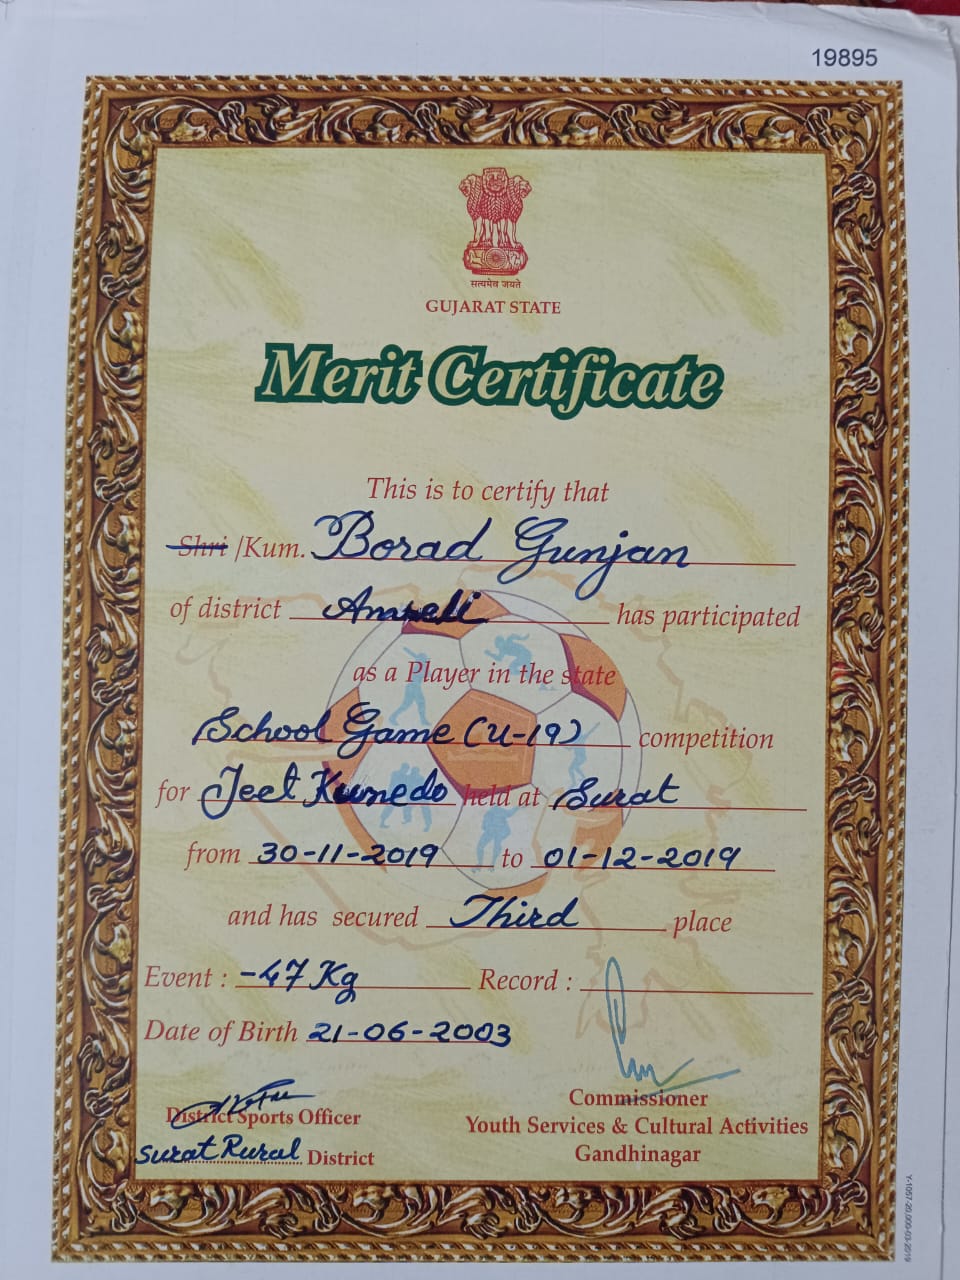 19895
सत्यमेव जयते
GUJARAT STATE
Merit Certificate
This is to certify that
Shri /Kum. Borad Gunjan
of district Amreli has participated
as a Player in the state
School Game (U-19) competition
for Jeet Kunedo held at Surat
from 30-11-2019 to 01-12-2019
and has secured Third place
Event : -47 Kg Record :
Date of Birth 21-06-2003
District Sports Officer
Surat Rural District
Commissioner
Youth Services & Cultural Activities
Gandhinagar
Y-1057-20,000-03-2019